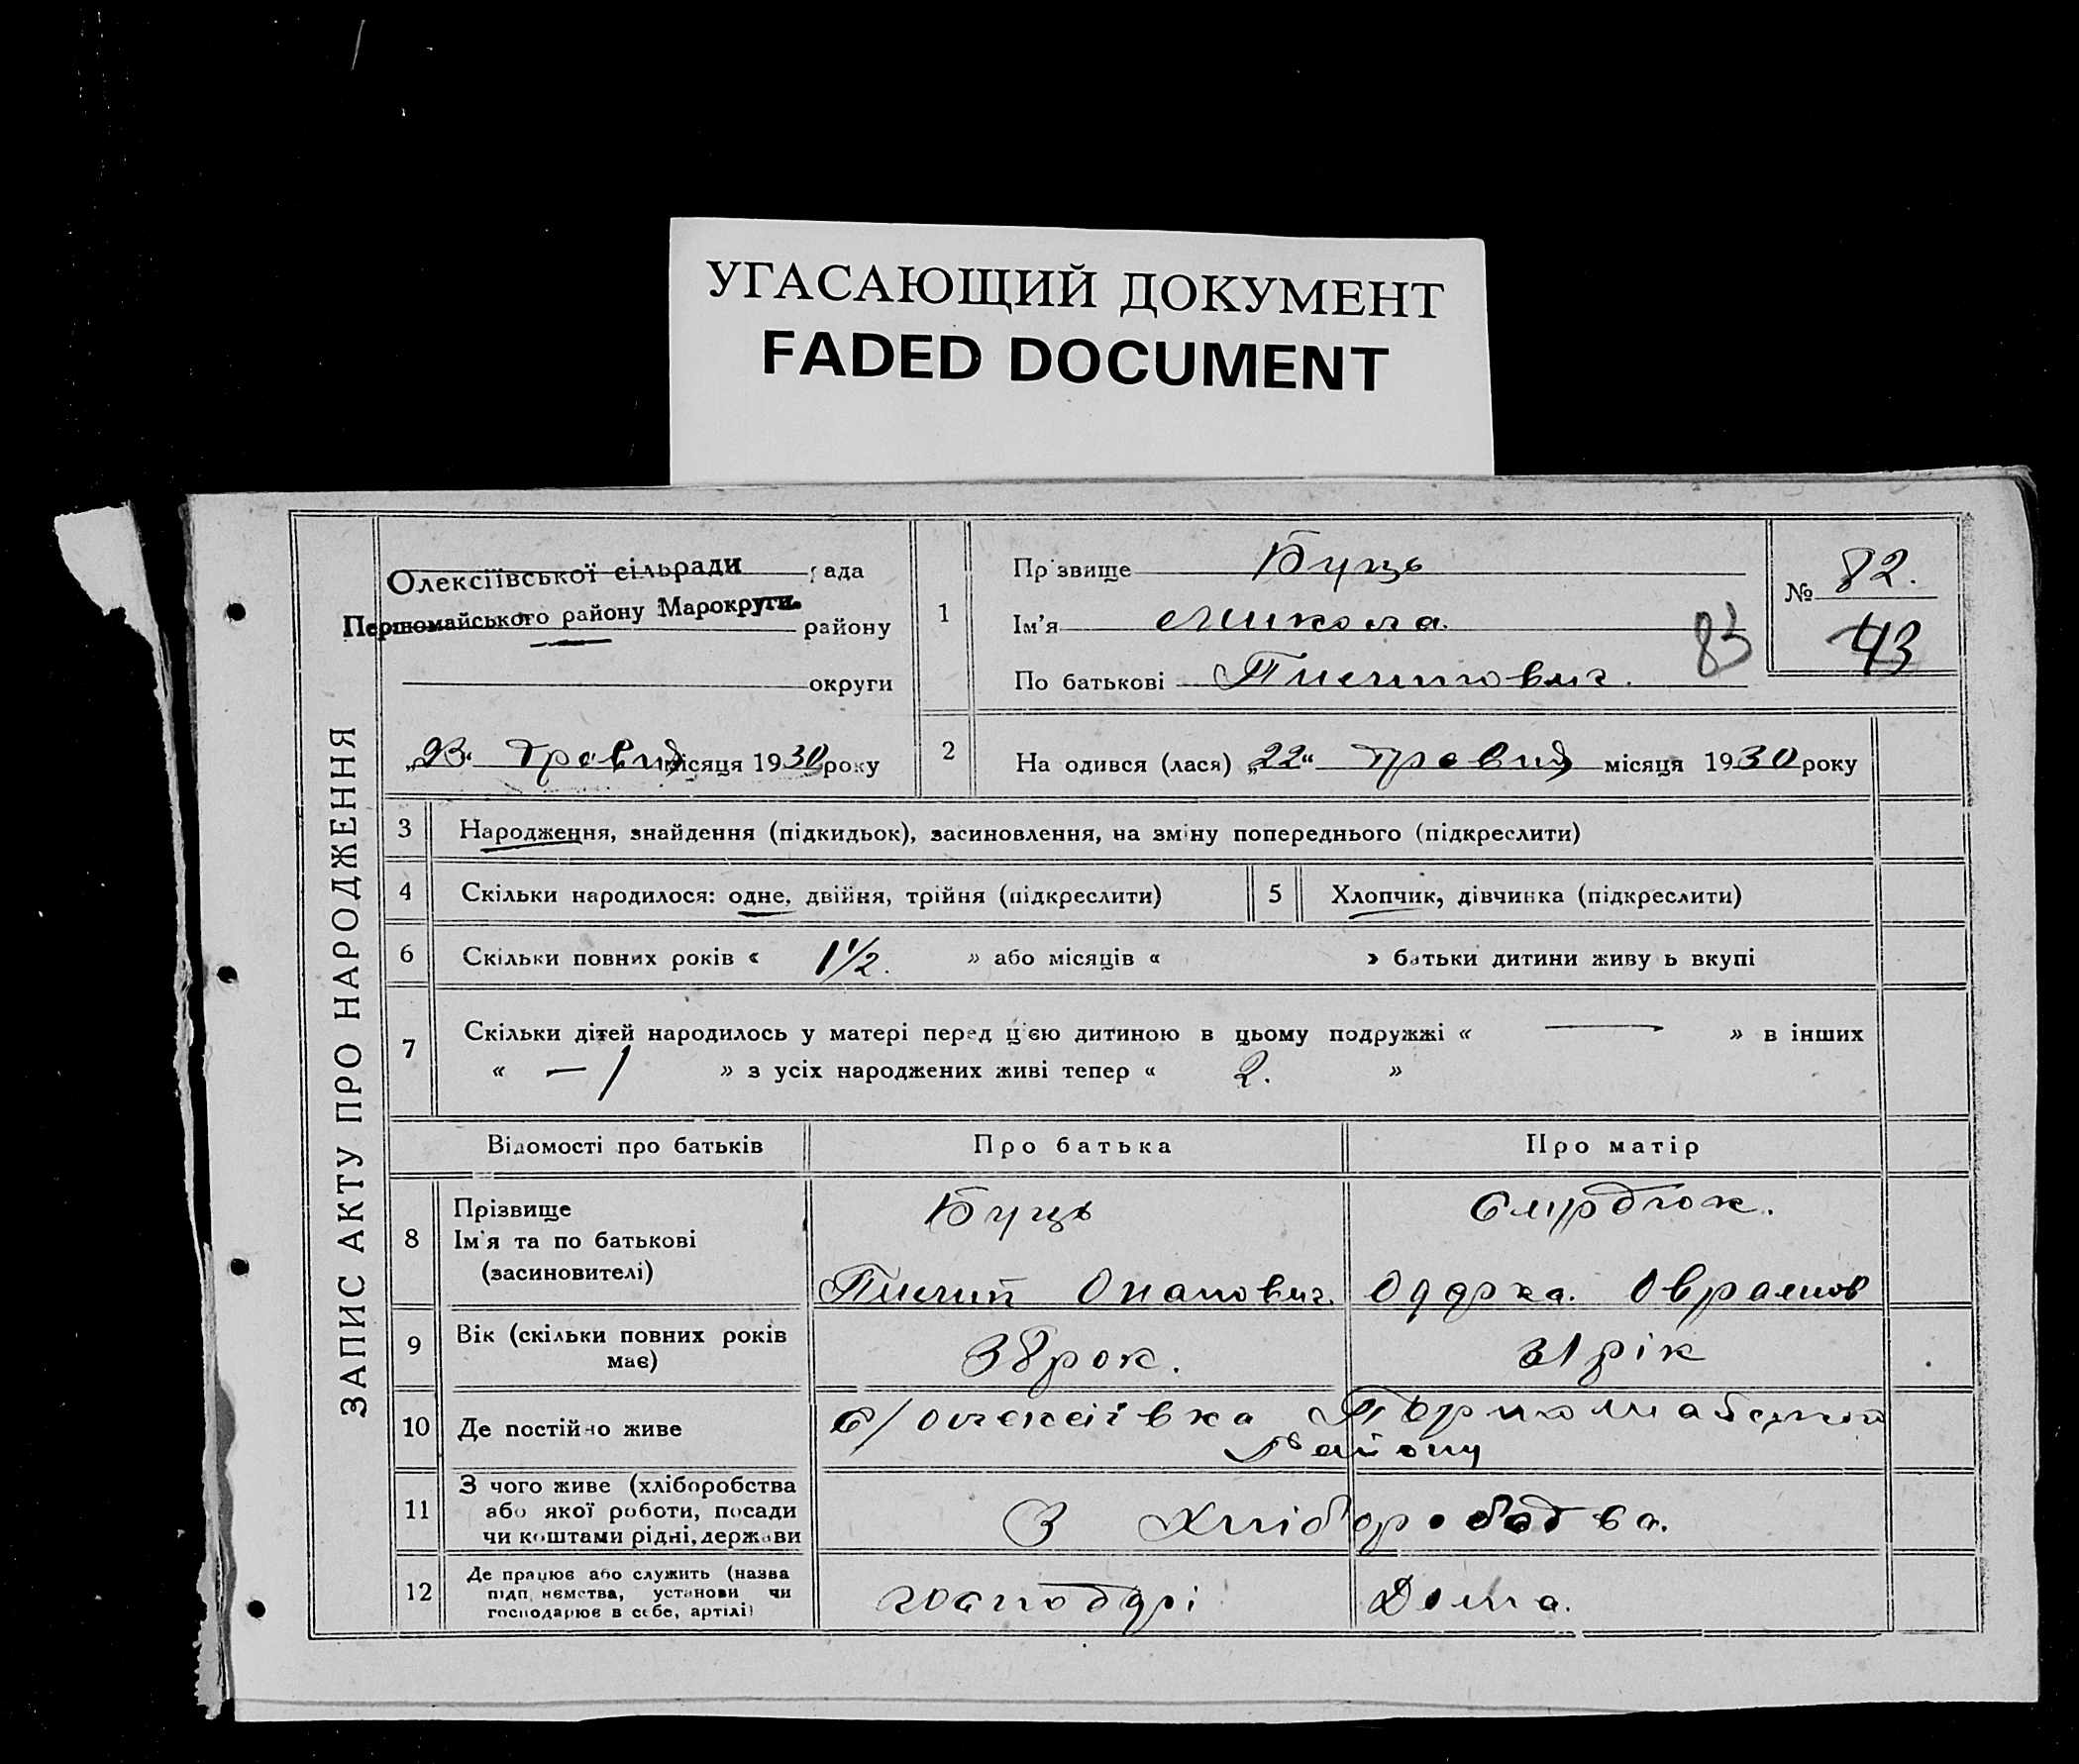 УГАСАЮЩИЙ ДОКУМЕНТ
FADED DOCUMENT
ЗАПИС АКТУ ПРО НАРОДЖЕННЯ
Олексіївської сільради рада
Першомайського району Марокруги району
округи
„23“ травня місяця 1930 року
1
Прізвище Буць
Ім’я Микола.
По батькові Пилипович.
№ 82.
83
43
2 На одився (лася) „22“ травня місяця 1930 року
3 Народження, знайдення (підкидьок), засиновлення, на зміну попереднього (підкреслити)
4 Скільки народилося: одне, двійня, трійня (підкреслити) 5 Хлопчик, дівчинка (підкреслити)
6 Скільки повних років « 1½. » або місяців « » батьки дитини живу ь вкупі
7 Скільки дітей народилось у матері перед цією дитиною в цьому подружжі « — » в інших
« — 1 » з усіх народжених живі тепер « 2. »
Відомості про батьків Про батька Про матір
8 Прізвище
Ім’я та по батькові
(засиновителі)
Буць
Пилип Опанович.
Оврамов
9 Вік (скільки повних років
має)
38 рок. 31 рік
10 Де постійно живе с/Олексіївка
Району
11 З чого живе (хліборобства
або якої роботи, посади
чи коштами рідні, держави
З Хліборобства.
12 Де працює або служить (назва
підп ємства, установи чи
господарює в себе, артілі)
господарі Дома.